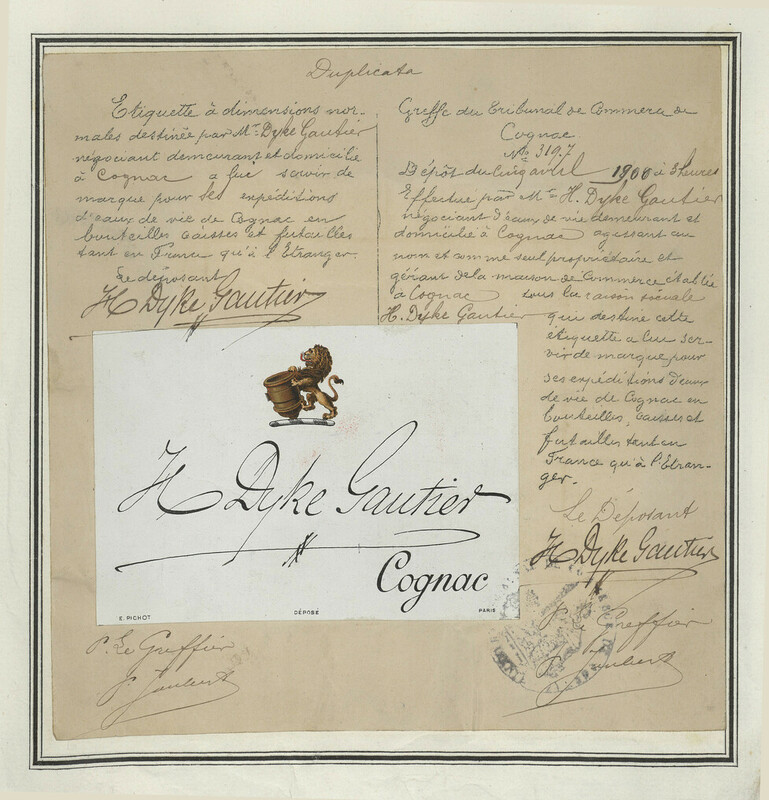 Duplicata
Etiquette à dimensions nor-
males destinée par Mr Dyke Gautier
négociant demeurant et domicilié
à Cognac a lue servir de
marque pour ses expéditions
d'eaux de vie de Cognac en
bouteilles caisses et futailles
tant en France qu'à l'Etranger.
Le déposant
H Dyke Gautier
Greffe du Tribunal de Commerce de
Cognac
No 3197
Dépôt du Cinq avril 1900 à 3 heures
Effectué par Mr H. Dyke Gautier
négociant d'eaux de vie demeurant et
domicilié à Cognac agissant au
nom et comme seul propriétaire et
gérant de la maison de Commerce établie
à Cognac sous la raison sociale
H. Dyke Gautier qui destine cette
étiquette a lue ser-
vir de marque pour
ses expéditions d'eaux
de vie de Cognac en
bouteilles, caisses et
futailles tant en
France qu'à l'Etran-
ger.
Le Déposant
H Dyke Gautier
H Dyke Gautier
Cognac
E. PICHOT
DÉPOSÉ
PARIS
P. Le Greffier
P. Joubert
P. Le Greffier
P. Joubert